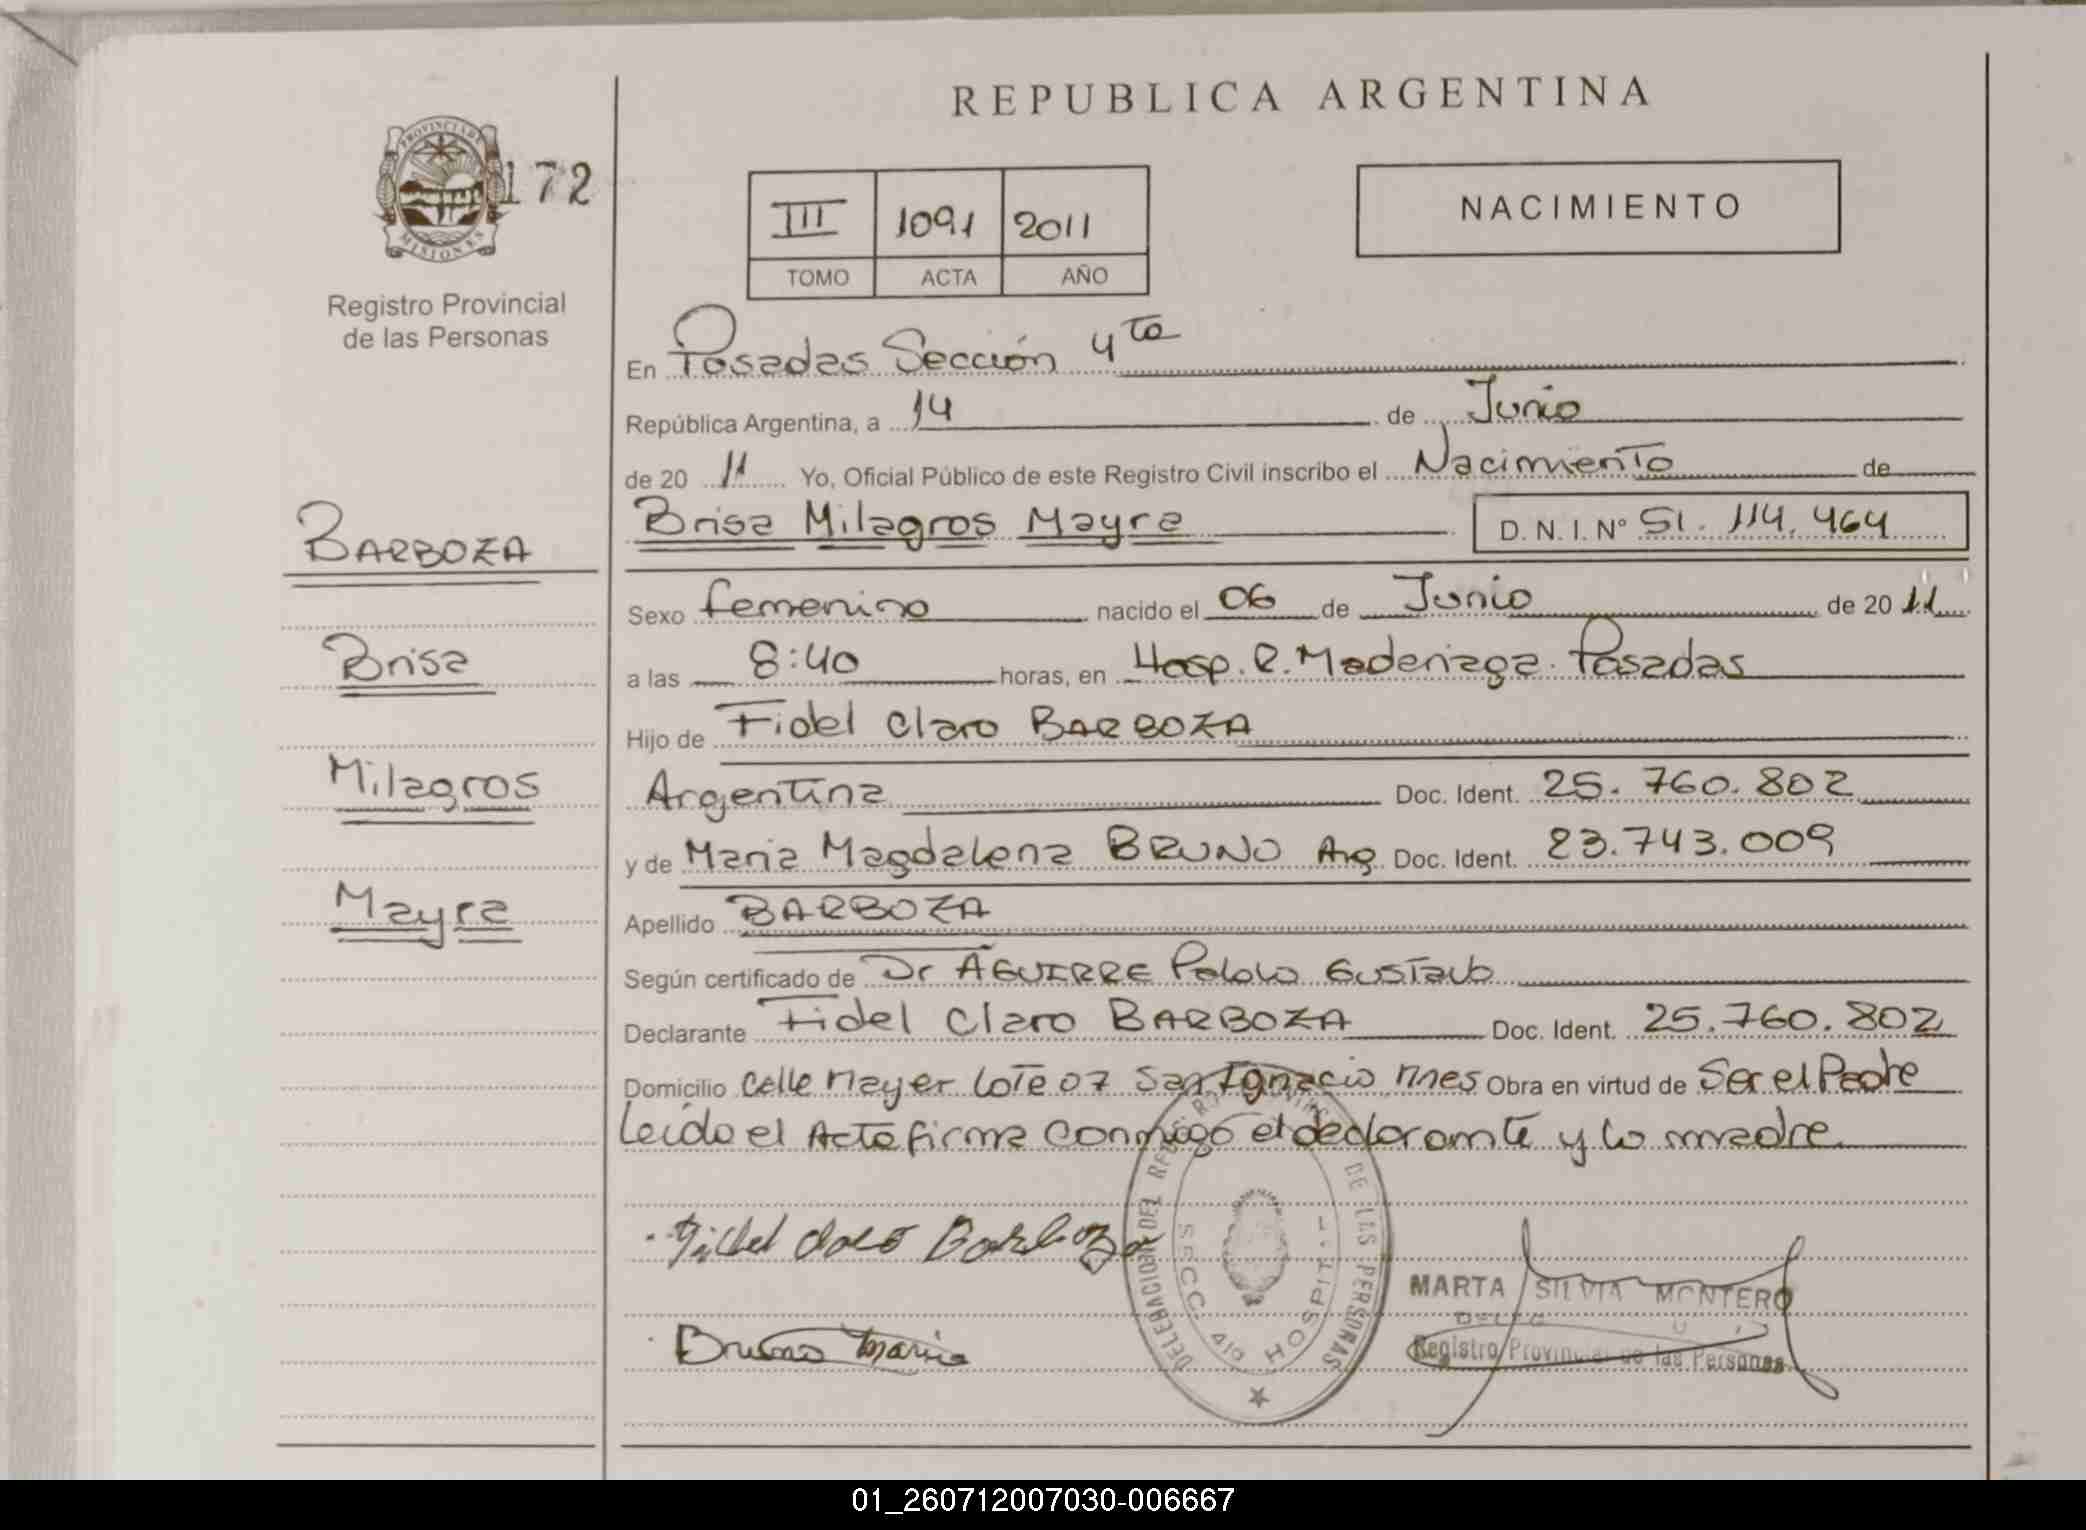 REPUBLICA ARGENTINA
PROVINCIA DE
MISIONES
172
Registro Provincial
de las Personas
III 1091 2011
TOMO ACTA AÑO
NACIMIENTO
En Posadas Sección 4ta
República Argentina, a 14 de Junio
de 20 11 Yo, Oficial Público de este Registro Civil inscribo el Nacimiento de
Brisa Milagros Mayra D. N. I. Nº 51.114.464
BARBOZA
Brisa
Milagros
Mayra
Sexo femenino nacido el 06 de Junio de 20 11
a las 8:40 horas, en Hosp. R. Madariaga. Posadas
Hijo de Fidel Claro BARBOZA
Argentina Doc. Ident. 25.760.802
y de Maria Magdalena BRUNO Arg Doc. Ident. 23.743.009
Apellido BARBOZA
Según certificado de Dr AGUIRRE Pablo Gustavo
Declarante Fidel Claro BARBOZA Doc. Ident. 25.760.802
Domicilio Calle Mayer Lote 07 San Ignacio Mnes Obra en virtud de Ser el Padre
Leído el Acta firma conmigo el declarante y la madre
Fidel Claro Barboza
Bruno Maria
DELEGACION DEL REGISTRO PROVINCIAL DE LAS PERSONAS
SECC. 4ta HOSPITAL
MARTA SILVIA MONTERO
Registro Provincial de las Personas
01_260712007030-006667